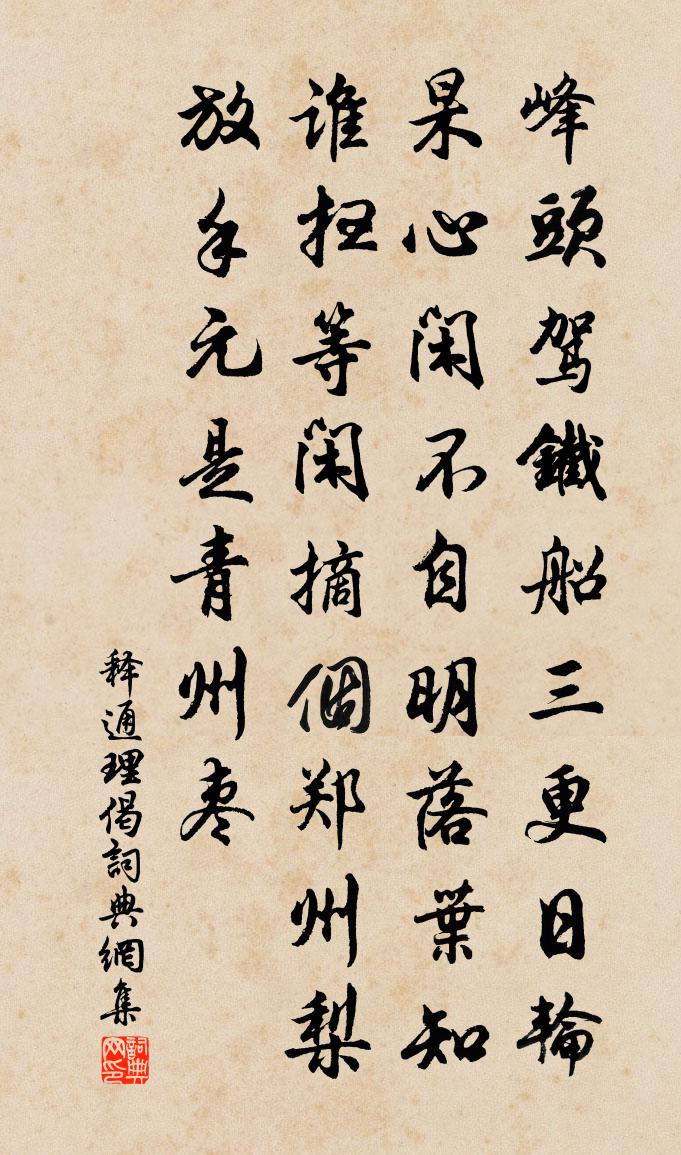 峰頭駕鐵船三更日輪
杲心閑不自明落葉知
誰扫等閑摘個郑州梨
放手元是青州枣
释通理偈詞典網集
詞典网印